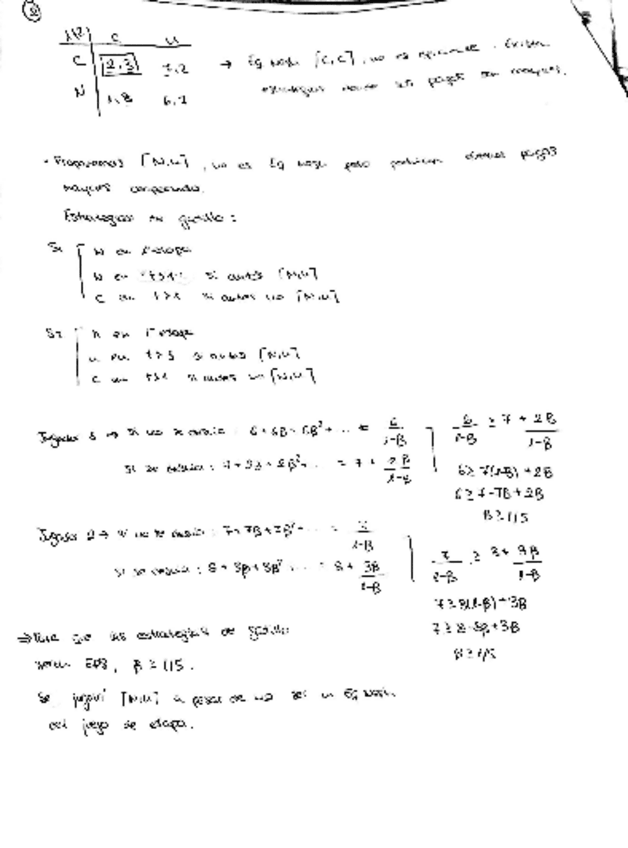 2
1(2) C N
C 2,3 7,2 → Eq Nash [C,C], no es eficiente. Existen
N 1,8 6,7 estrategias donde los pagos son mayores.
· Proponemos [N,N], no es Eq Nash pero podrían obtener pagos
mayores cooperando.
Estrategias de gatillo:
S1 N en 1ª etapa
N en t>1 si antes [N,N]
C en t>1 si antes no [N,N]
S2 N en 1ª etapa
N en t>1 si antes [N,N]
C en t>1 si antes no [N,N]
Jugador 1 → si no se desvía: 6+6β+6β²+... = 6/1-β
si se desvía: 7+2β+2β²+... = 7+ 2β/1-β
6/1-β ≥ 7 + 2β/1-β
6≥7(1-β)+2β
6≥7-7β+2β
β≥1/5
Jugador 2 → si no se desvía: 7+7β+7β²+... = 7/1-β
si se desvía: 8+3β+3β²+... = 8+ 3β/1-β
7/1-β ≥ 8+ 3β/1-β
7≥8(1-β)+3β
7≥8-8β+3β
β≥1/5
⇒ Para que las estrategias de gatillo
sean EPS, β≥1/5.
Se jugará [N,N] a pesar de no ser un Eq Nash
del juego de etapa.